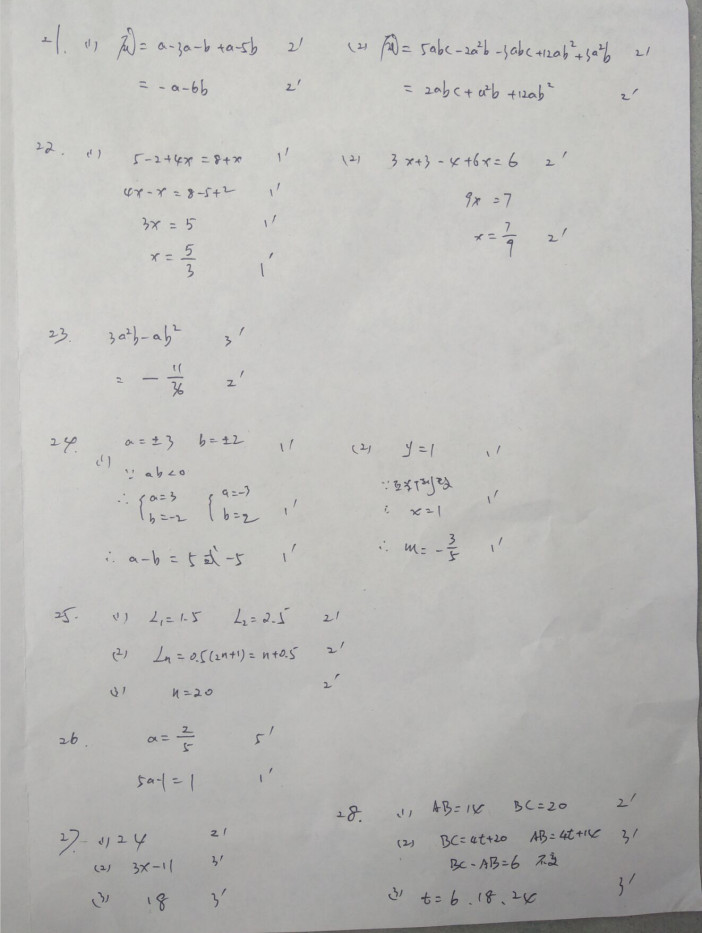 21. (1) 原式 = a-3a-b+a-5b 2'
= -a-6b 2'
(2) 原式 = 5abc-2a²b-3abc+12ab²+3a²b 2'
= 2abc+a²b+12ab² 2'
22. (1) 5-2+4x=8+x 1'
4x-x=8-5+2 1'
3x=5 1'
x=5/3 1'
(2) 3x+3-4+6x=6 2'
9x=7
x=7/9 2'
23. 3a²b-ab² 3'
= -11/36 2'
24. a=±3 b=±2 1'
(1) ∵ ab<0
∴ {a=3 b=-2 {a=-3 b=2 1'
∴ a-b=5或-5 1'
(2) y=1 1'
∵互为倒数
∴ x=1 1'
∴ m=-3/5 1'
25. (1) L₁=1.5 L₂=2.5 2'
(2) Ln=0.5(2n+1)=n+0.5 2'
(3) n=20 2'
26. a=2/5 5'
5a-1=1 1'
27. (1) 24 2'
(2) 3x-11 3'
(3) 18 3'
28. (1) AB=14 BC=20 2'
(2) BC=4t+20 AB=4t+14 3'
BC-AB=6 不变
(3) t=6、18、24 3'